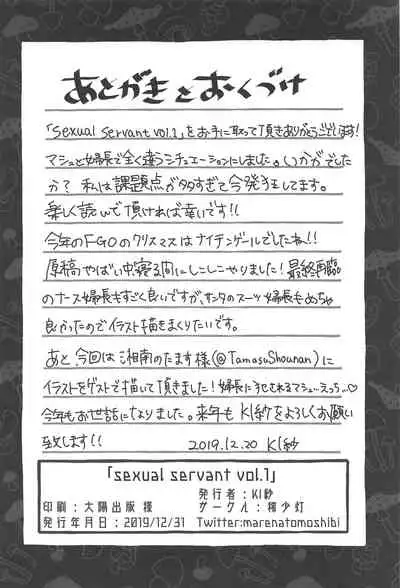 あとがきとおくづけ
「sexual servant vol.1」をお手に取って頂きありがとうございます!
マシュと婦長で全く違うシチュエーションにしました。いかがでした
か? 私は課題点が多すぎて今発狂してます。
楽しく読んで頂ければ幸いです!!
今年のFGOのクリスマスはナイチンゲールでしたね!!
原稿やばい中、寝る間にしこしこやりました!最終再臨
のナース婦長もすごく良いですが、サンタのスーツ婦長もめちゃ
良かったのでイラスト描きまくりたいです。
あと、今回は湘南のたます様(@TamasuShounan)に
イラストをゲストで描いて頂きました!婦長にうとされるマシュ…えっう…♡
今年もお世話になりました。来年もKI紗をよろしくお願い
致します!! 2019.12.20 KI紗
「sexual servant vol.1」
発行者:KI紗
印刷:大陽出版 様 サークル:稀少灯
発行年月日:2019/12/31 Twitter:marenatomoshibi